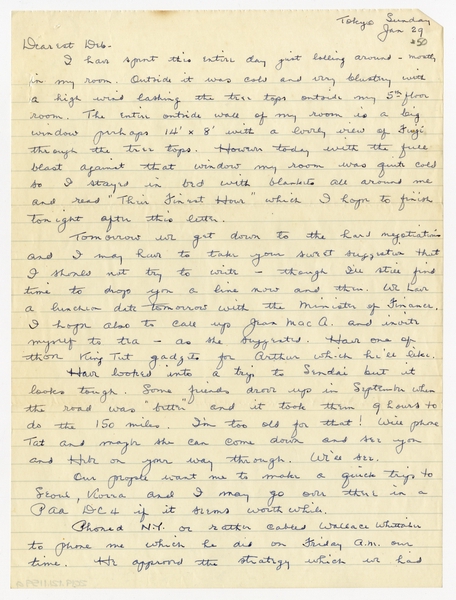 Tokyo Sunday
Jan 29
50
Dearest Deb-
I have spent this entire day just lolling around - mostly
in my room. Outside it was cold and very blustery with
a high wind lashing the tree tops outside my 5th floor
room. The entire outside wall of my room is a big
window perhaps 14' x 8' with a lovely view of Fuji
through the tree tops. However today with the full
blast against that window my room was quite cold
so I stayed in bed with blankets all around me
and read "Their Finest Hour" which I hope to finish
tonight after this letter.
Tomorrow we get down to the hard negotiations
and I may have to take your sweet suggestion that
I should not try to write - though I'll still find
time to drop you a line now and then. We have
a luncheon date tomorrow with the Minister of Finance.
I hope also to call up Jean Mac A. and invite
myself to tea - as she suggested. Have one of
those King Tut gadgets for Arthur which he'll like.
Have looked into a trip to Sendai but it
looks tough. Some friends drove up in September when
the road was "better" and it took them 9 hours to
do the 150 miles. I'm too old for that! Will phone
Tat and maybe she can come down and see you
and on your way through. We'll see.
Our people want me to make a quick trip to
Seoul, Korea and I may go over there in a
PAA DC4 if it seems worth while.
Phoned N.Y. or rather cabled Wallace Whittaker
to phone me which he did on Friday A.M. our
time. He approved the strategy which we had